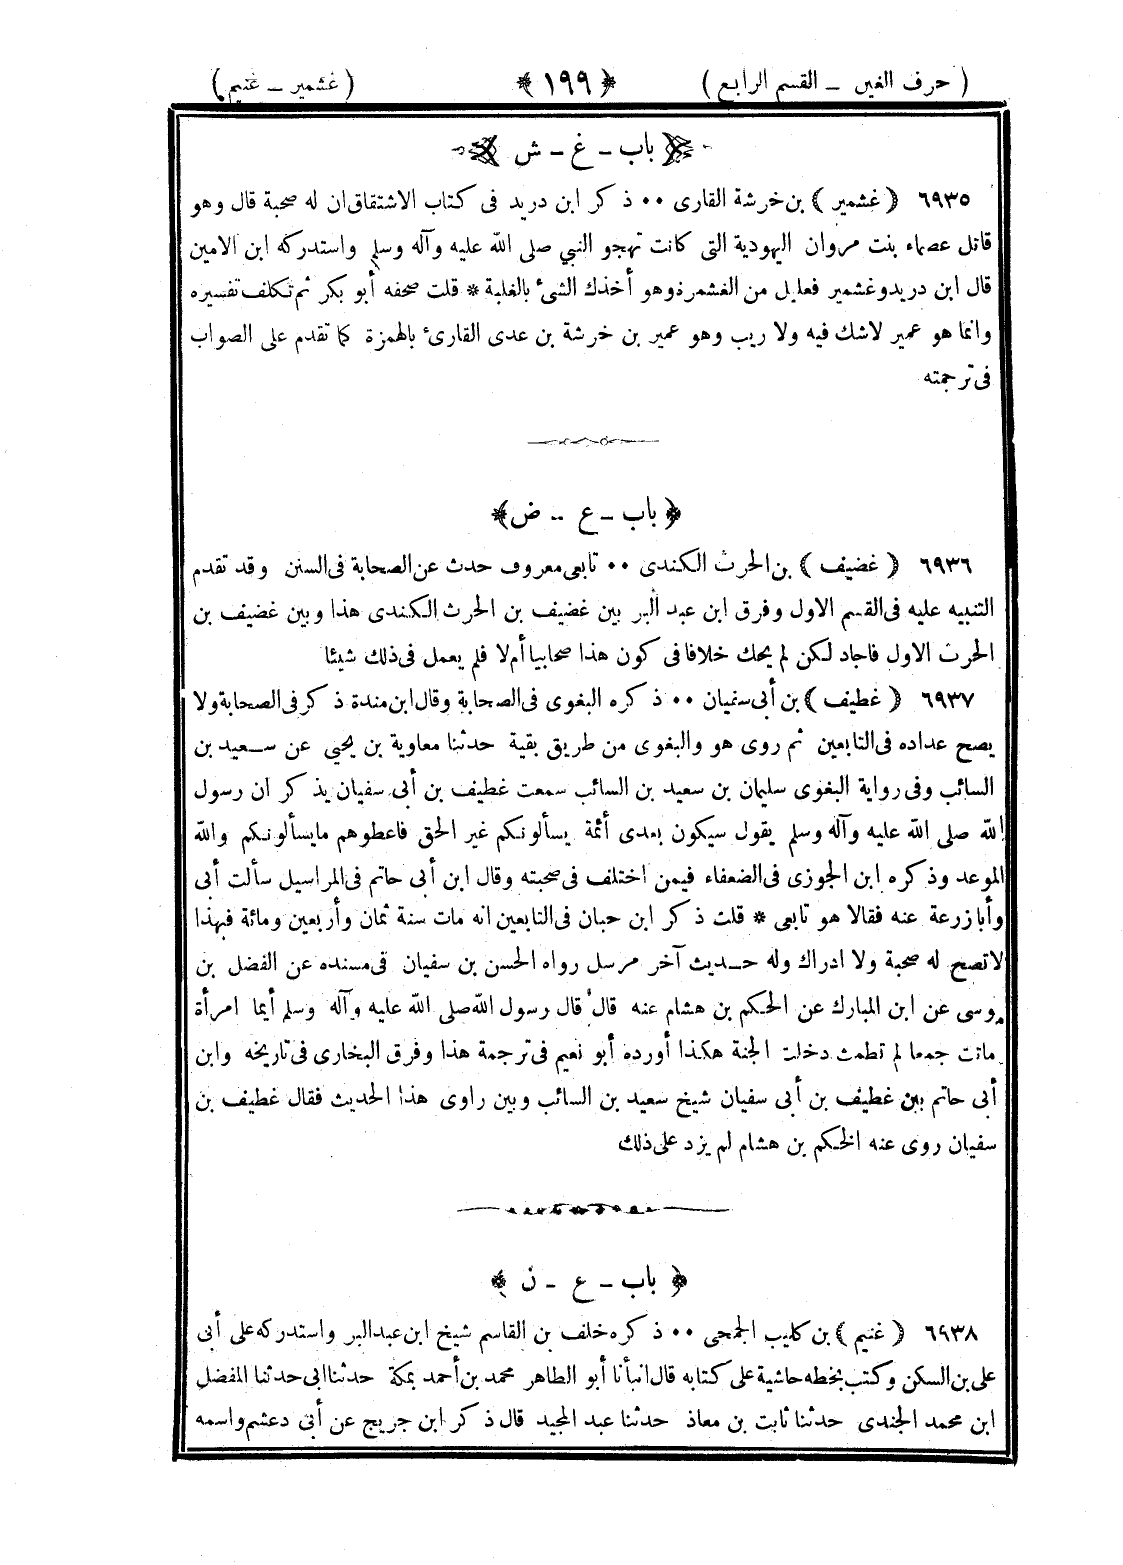 ( حرف الغين ـ القسم الرابع ) ﴿ ١٩٩ ﴾ ( غشمير ـ غنيم )
باب ـ غ ـ ش
٦٩٣٥ ( غشمير ) بن خرشة القارى ٠٠ ذكر ابن دريد فى كتاب الاشتقاق ان له صحبة قال وهو
قاتل عصماء بنت مروان اليهودية التى كانت تهجو النبي صلى الله عليه وآله وسلم واستدركه ابن الامين
قال ابن دريد وغشمير فعليل من الغشمرة وهو أخذك الشئ بالغلبة * قلت صحفه أبو بكر ثم تكلف تفسيره
وانما هو عمير لاشك فيه ولا ريب وهو عمير بن خرشة بن عدى القارئ بالهمزة كما تقدم على الصواب
فى ترجمته
﴿ باب ـ ع ـ ض ﴾
٦٩٣٦ ( غضيف ) بن الحرث الكندى ٠٠ تابعى معروف حدث عن الصحابة فى السنن وقد تقدم
التنبيه عليه فى القسم الاول وفرق ابن عبد البر بين غضيف بن الحرث الكندى هذا وبين غضيف بن
الحرث الاول فاجاد لكن لم يحك خلافا فى كون هذا صحابيا أم لا فلم يعمل فى ذلك شيئا
٦٩٣٧ ( غطيف ) بن أبى سفيان ٠٠ ذكره البغوى فى الصحابة وقال ابن مندة ذكر فى الصحابة ولا
يصح عداده فى التابعين ثم روى هو والبغوى من طريق بقية حدثنا معاوية بن يحيى عن سـعيد بن
السائب وفى رواية البغوى سليمان بن سعيد بن السائب سمعت غطيف بن أبى سفيان يذكر ان رسول
الله صلى الله عليه وآله وسلم يقول سيكون بعدى أئمة يسألونكم غير الحق فاعطوهم مايسألونكم والله
الموعد وذكره ابن الجوزى فى الضعفاء فيمن اختلف فى صحبته وقال ابن أبى حاتم فى المراسيل سألت أبى
وأبا زرعة عنه فقالا هو تابعى * قلت ذكر ابن حبان فى التابعين انه مات سنة ثمان وأربعين ومائة فبهذا
لا تصح له صحبة ولا ادراك وله حـديث آخر مرسل رواه الحسن بن سفيان فى مسنده عن الفضل بن
موسى عن ابن المبارك عن الحكم بن هشام عنه قال قال رسول الله صلى الله عليه وآله وسلم أيما امرأة
ماتت جمعا لم تطمث دخلت الجنة هكذا أورده أبو نعيم فى ترجمة هذا وفرق البخارى فى تاريخه وابن
أبى حاتم بين غطيف بن أبى سفيان شيخ سعيد بن السائب وبين راوى هذا الحديث فقال غطيف بن
سفيان روى عنه الحكم بن هشام لم يزد على ذلك
﴿ باب ـ ع ـ ن ﴾
٦٩٣٨ ( غنيم ) بن كليب الجمحى ٠٠ ذكره خلف بن القاسم شيخ ابن عبد البر واستدركه على أبى
على بن السكن وكتب بخطه حاشية على كتابه قال انبأنا أبو الطاهر محمد بن أحمد بمكة حدثنا ابى حدثنا المفضل
ابن محمد الجندى حدثنا ثابت بن معاذ حدثنا عبد المجيد قال ذكر ابن جريج عن أبى دعشم واسمه